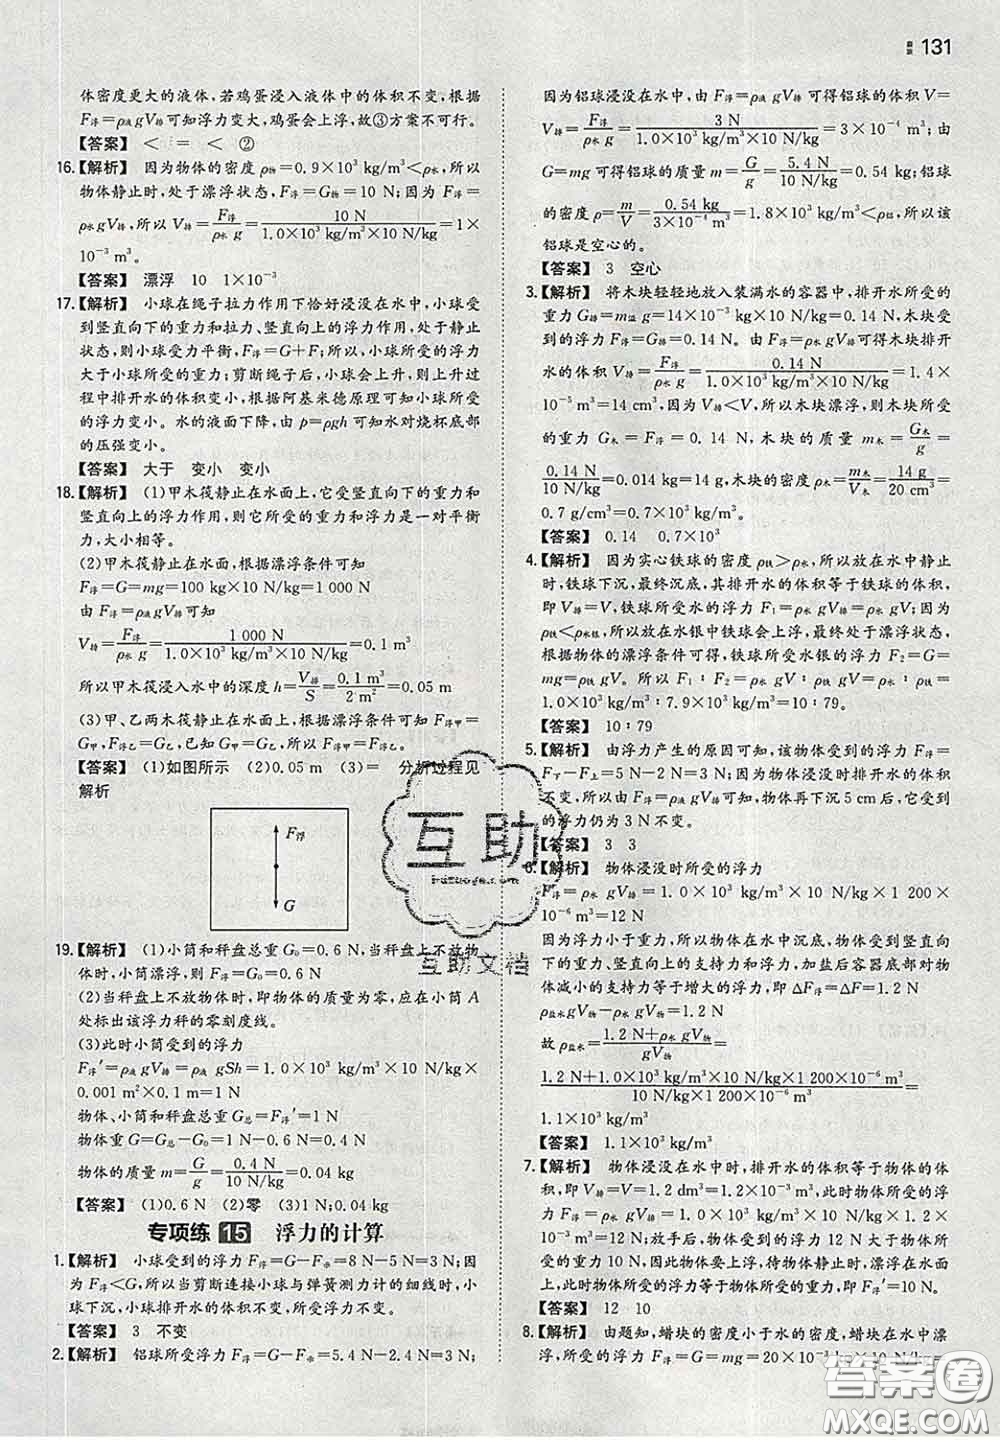 131
体密度更大的液体,若鸡蛋浸入液体中的体积不变,根据
F浮=ρ液gV排可知浮力变大,鸡蛋会上浮,故③方案不可行。
【答案】 < = < ②
16.【解析】 因为物体的密度ρ物=0.9×10³ kg/m³<ρ水,所以
物体静止时,处于漂浮状态,F浮=G物=10 N;因为F浮=
ρ水gV排,所以V排=F浮/(ρ水 g)=10 N/(1.0×10³ kg/m³×10 N/kg)=1×
10⁻³ m³。
【答案】 漂浮 10 1×10⁻³
17.【解析】 小球在绳子拉力作用下恰好浸没在水中,小球受
到竖直向下的重力和拉力、竖直向上的浮力作用,处于静止
状态,则小球受力平衡,F浮=G+F;所以,小球所受的浮力
大于小球所受的重力;剪断绳子后,小球会上升,则上升过
程中排开水的体积变小,根据阿基米德原理可知小球所受
的浮力变小。水的液面下降,由p=ρgh可知水对烧杯底部
的压强变小。
【答案】 大于 变小 变小
18.【解析】 (1)甲木筏静止在水面上,它受竖直向下的重力和
竖直向上的浮力作用,则它所受的重力和浮力是一对平衡
力,大小相等。
(2)甲木筏静止在水面,根据漂浮条件可知
F浮=G=mg=100 kg×10 N/kg=1 000 N
由F浮=ρ液gV排可知
V排=F浮/(ρ水 g)=1 000 N/(1.0×10³ kg/m³×10 N/kg)=0.1 m³
所以甲木筏浸入水中的深度h=V排/S=0.1 m³/2 m²=0.05 m
(3)甲、乙两木筏静止在水面上,根据漂浮条件可知F浮甲=
G甲,F浮乙=G乙,已知G甲=G乙,所以F浮甲=F浮乙。
【答案】 (1)如图所示 (2)0.05 m (3)= 分析过程见
解析
F浮
G
19.【解析】 (1)小筒和秤盘总重G₀=0.6 N,当秤盘上不放物
体时,小筒漂浮,则F浮=G₀=0.6 N
(2)当秤盘上不放物体时,即物体的质量为零,应在小筒A
处标出该浮力秤的零刻度线。
(3)此时小筒受到的浮力
F浮′=ρ液gV排=ρ液gSh=1.0×10³ kg/m³×10 N/kg×
0.001 m²×0.1 m=1 N
物体、小筒和秤盘总重G总=F浮′=1 N
物体重G=G总-G₀=1 N-0.6 N=0.4 N
物体的质量m=G/g=0.4 N/10 N/kg=0.04 kg
【答案】 (1)0.6 N (2)零 (3)1 N;0.04 kg
专项练 15 浮力的计算
1.【解析】 小球受到的浮力F浮=G-F示=8 N-5 N=3 N;因
为F浮<G,所以当剪断连接小球与弹簧测力计的细线时,小
球下沉,小球排开水的体积不变,所受浮力不变。
【答案】 3 不变
2.【解析】 铝球所受浮力F浮=G-F示=5.4 N-2.4 N=3 N;
因为铝球浸没在水中,由F浮=ρ液gV排可得铝球的体积V=
V排=F浮/(ρ水 g)=3 N/(1.0×10³ kg/m³×10 N/kg)=3×10⁻⁴ m³;由
G=mg可得铝球的质量m=G/g=5.4 N/10 N/kg=0.54 kg,铝球
的密度ρ=m/V=0.54 kg/(3×10⁻⁴ m³)=1.8×10³ kg/m³<ρ铝,所以该
铝球是空心的。
【答案】 3 空心
3.【解析】 将木块轻轻地放入装满水的容器中,排开水所受的
重力G排=m溢 g=14×10⁻³ kg×10 N/kg=0.14 N,木块受
到的浮力F浮=G排=0.14 N,由F浮=ρ液gV排可得木块排开
水的体积V排=F浮/(ρ水 g)=0.14 N/(1.0×10³ kg/m³×10 N/kg)=1.4×
10⁻⁵ m³=14 cm³;因为V排<V,所以木块漂浮,则木块所受
的重力G木=F浮=0.14 N,木块的质量m木=G木/g=
0.14 N/10 N/kg=0.014 kg=14 g;木块的密度ρ木=m木/V木=14 g/20 cm³=
0.7 g/cm³=0.7×10³ kg/m³。
【答案】 0.14 0.7×10³
4.【解析】 因为实心铁球的密度ρ铁>ρ水,所以放在水中静止
时,铁球下沉,最终沉底,其排开水的体积等于铁球的体积,
即V排=V,铁球所受水的浮力F₁=ρ水gV排=ρ水gV;因为
ρ铁<ρ水银,所以放在水银中铁球会上浮,最终处于漂浮状态,
根据物体的漂浮条件可得,铁球所受水银的浮力F₂=G=
mg=ρ铁gV。所以F₁∶F₂=ρ水gV∶ρ铁gV=ρ水∶ρ铁=
1.0×10³ kg/m³∶7.9×10³ kg/m³=10∶79。
【答案】 10∶79
5.【解析】 由浮力产生的原因可知,该物体受到的浮力F浮=
F下-F上=5 N-2 N=3 N;因为物体浸没时排开水的体积
不变,所以由F浮=ρ液gV排可知,物体再下沉5 cm后,受到
的浮力仍为3 N不变。
【答案】 3 3
6.【解析】 物体浸没时所受的浮力
F浮=ρ水 gV排=1.0×10³ kg/m³×10 N/kg×1 200×
10⁻⁶ m³=12 N
因为浮力小于重力,所以物体在水中沉底,物体所受的力有
竖直向上的支持力和浮力,加盐后容器底部所受的
体减小的支持力等于增大的浮力,即ΔF浮=ΔF=1.2 N
ρ盐水gV物-ρ水gV物=1.2 N
故ρ盐水=(1.2 N+ρ水 gV物)/gV物=
(1.2 N+1.0×10³ kg/m³×10 N/kg×1 200×10⁻⁶ m³)/(10 N/kg×1 200×10⁻⁶ m³)=
1.1×10³ kg/m³
【答案】 1.1×10³ kg/m³
7.【解析】 物体浸没在水中时,排开水的体积等于物体的体
积,即V排=V=1.2×10⁻³ m³,物体所受的浮力F浮=
ρ水gV排=1.0×10³ kg/m³×10 N/kg×1.2×10⁻³ m³=
12 N;放手后,物体受到竖直向上的浮力12 N大于物体的
重力10 N,故物体要上浮,待物体静止时,漂浮在水面上,
此时物体所受的浮力等于物体所受的重力,即F浮′=10 N。
【答案】 12 10
8.【解析】 由题知,蜡块的密度小于水的密度,蜡块在水中漂
浮,所受的浮力F浮=G=mg=20×10⁻³ kg×
互助
互助文档
答案圈
MXQE.COM